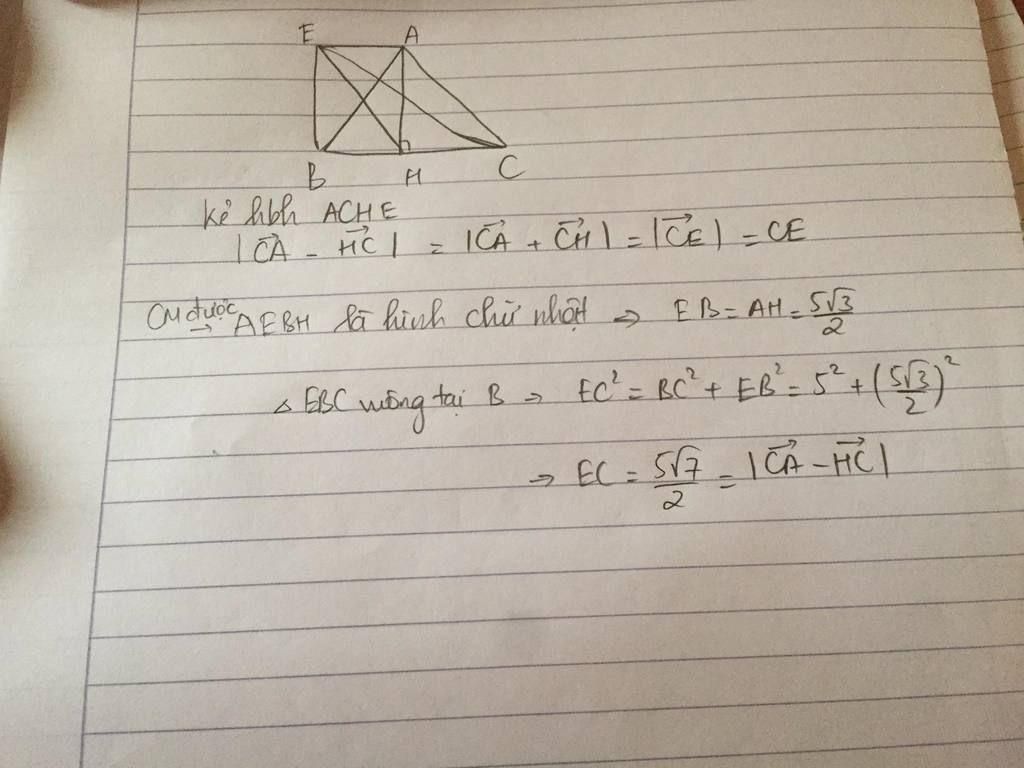 E A
B H C
Kẻ hbh ACHE
|$\overrightarrow{CA}$ - $\overrightarrow{HC}$| = |$\overrightarrow{CA}$ + $\overrightarrow{CH}$| = |$\overrightarrow{CE}$| = CE
CM được → AEBH là hình chữ nhật → EB = AH = $\frac{5\sqrt{3}}{2}$
△ EBC vuông tại B → EC² = BC² + EB² = 5² + $\left(\frac{5\sqrt{3}}{2}\right)^2$
→ EC = $\frac{5\sqrt{7}}{2}$ = |$\overrightarrow{CA}$ - $\overrightarrow{HC}$|